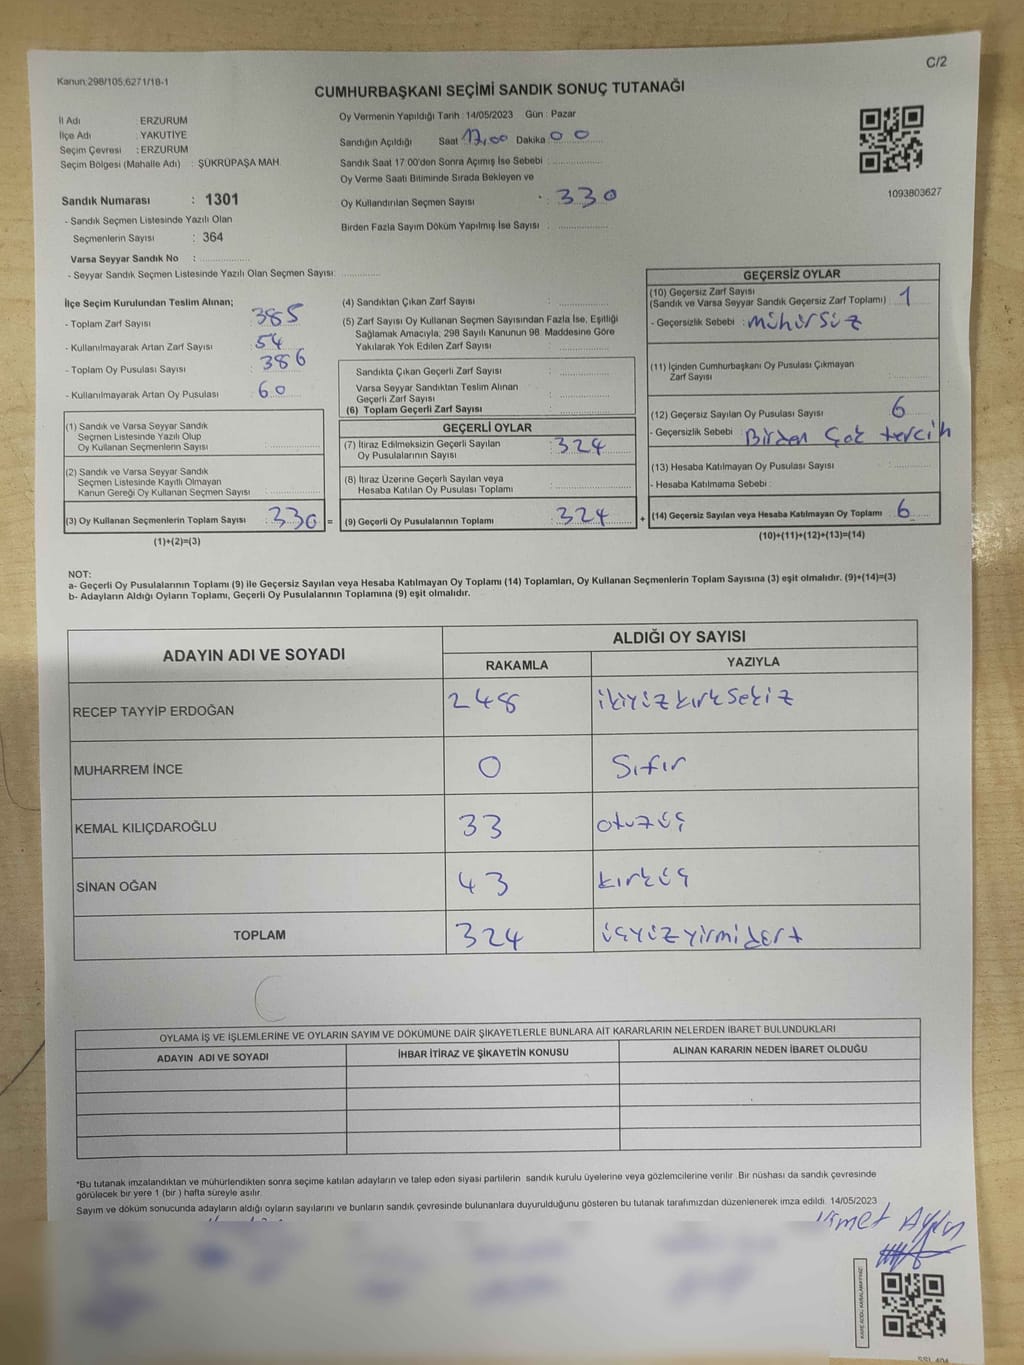 Kanun:298/105,6271/18-1
C/2
CUMHURBAŞKANI SEÇİMİ SANDIK SONUÇ TUTANAĞI
İl Adı : ERZURUM
İlçe Adı : YAKUTİYE
Seçim Çevresi : ERZURUM
Seçim Bölgesi (Mahalle Adı) : ŞÜKRÜPAŞA MAH.
Sandık Numarası : 1301
- Sandık Seçmen Listesinde Yazılı Olan
Seçmenlerin Sayısı : 364
Varsa Seyyar Sandık No :
- Seyyar Sandık Seçmen Listesinde Yazılı Olan Seçmen Sayısı:
Oy Vermenin Yapıldığı Tarih : 14/05/2023 Gün : Pazar
Sandığın Açıldığı Saat 17,00 Dakika 00
Sandık Saat 17:00'den Sonra Açımış İse Sebebi :
Oy Verme Saati Bitiminde Sırada Bekleyen ve
Oy Kullandırılan Seçmen Sayısı : 330
Birden Fazla Sayım Döküm Yapılmış İse Sayısı :
1093803627
İlçe Seçim Kurulundan Teslim Alınan;
- Toplam Zarf Sayısı : 385
- Kullanılmayarak Artan Zarf Sayısı : 54
- Toplam Oy Pusulası Sayısı : 386
- Kullanılmayarak Artan Oy Pusulası : 60
(1) Sandık ve Varsa Seyyar Sandık
Seçmen Listesinde Yazılı Olup
Oy Kullanan Seçmenlerin Sayısı :
(2) Sandık ve Varsa Seyyar Sandık
Seçmen Listesinde Kayıtlı Olmayan
Kanun Gereği Oy Kullanan Seçmen Sayısı :
(3) Oy Kullanan Seçmenlerin Toplam Sayısı : 330 =
(1)+(2)=(3)
(4) Sandıktan Çıkan Zarf Sayısı :
(5) Zarf Sayısı Oy Kullanan Seçmen Sayısından Fazla İse, Eşitliği
Sağlamak Amacıyla, 298 Sayılı Kanunun 98. Maddesine Göre
Yakılarak Yok Edilen Zarf Sayısı :
Sandıkta Çıkan Geçerli Zarf Sayısı :
Varsa Seyyar Sandıktan Teslim Alınan
Geçerli Zarf Sayısı :
(6) Toplam Geçerli Zarf Sayısı :
GEÇERLİ OYLAR
(7) İtiraz Edilmeksizin Geçerli Sayılan
Oy Pusulalarının Sayısı : 324
(8) İtiraz Üzerine Geçerli Sayılan veya
Hesaba Katılan Oy Pusulası Toplamı :
(9) Geçerli Oy Pusulalarının Toplamı : 324 +
GEÇERSİZ OYLAR
(10) Geçersiz Zarf Sayısı
(Sandık ve Varsa Seyyar Sandık Geçersiz Zarf Toplamı) : 1
- Geçersizlik Sebebi : mühürsüz
(11) İçinden Cumhurbaşkanı Oy Pusulası Çıkmayan
Zarf Sayısı :
(12) Geçersiz Sayılan Oy Pusulası Sayısı : 6
- Geçersizlik Sebebi : Birden Çok tercih
(13) Hesaba Katılmayan Oy Pusulası Sayısı :
- Hesaba Katılmama Sebebi :
(14) Geçersiz Sayılan veya Hesaba Katılmayan Oy Toplamı : 6
(10)+(11)+(12)+(13)=(14)
NOT:
a- Geçerli Oy Pusulalarının Toplamı (9) ile Geçersiz Sayılan veya Hesaba Katılmayan Oy Toplamı (14) Toplamları, Oy Kullanan Seçmenlerin Toplam Sayısına (3) eşit olmalıdır. (9)+(14)=(3)
b- Adayların Aldığı Oyların Toplamı, Geçerli Oy Pusulalarının Toplamına (9) eşit olmalıdır.
ADAYIN ADI VE SOYADI
ALDIĞI OY SAYISI
RAKAMLA YAZIYLA
RECEP TAYYİP ERDOĞAN 248 ikiyüzkırksekiz
MUHARREM İNCE 0 Sıfır
KEMAL KILIÇDAROĞLU 33 otuzüç
SİNAN OĞAN 43 kırküç
TOPLAM 324 üçyüzyirmidört
OYLAMA İŞ VE İŞLEMLERİNE VE OYLARIN SAYIM VE DÖKÜMÜNE DAİR ŞİKAYETLERLE BUNLARA AİT KARARLARIN NELERDEN İBARET BULUNDUKLARI
ADAYIN ADI VE SOYADI İHBAR İTİRAZ VE ŞİKAYETİN KONUSU ALINAN KARARIN NEDEN İBARET OLDUĞU
*Bu tutanak imzalandıktan ve mühürlendikten sonra seçime katılan adayların ve talep eden siyasi partilerin sandık kurulu üyelerine veya gözlemcilerine verilir. Bir nüshası da sandık çevresinde
görülecek bir yere 1 (bir ) hafta süreyle asılır.
Sayım ve döküm sonucunda adayların aldığı oyların sayılarını ve bunların sandık çevresinde bulunanlara duyurulduğunu gösteren bu tutanak tarafımızdan düzenlenerek imza edildi. 14/05/2023